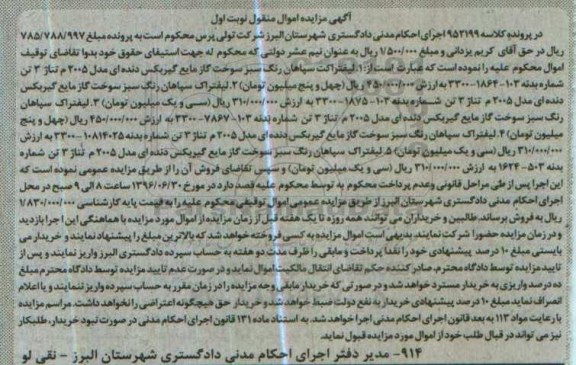 آگهی مزایده اموال منقول نوبت اول
در پرونده کلاسه ۹۵۲۱۹۹ اجرای احکام مدنی دادگستری شهرستان البرز شرکت تولی پرس محکوم است به پرونده مبلغ ۷۸۵/۷۸۸/۹۹۷
ریال در حق آقای کریم یزدانی و مبلغ ۱/۵۰۰/۰۰۰ ریال به عنوان نیم عشر دولتی که محکوم له جهت استیفای حقوق خود بدوا تقاضای توقیف
اموال محکوم علیه را نموده است که عبارت است از: ۱. لیفتراکت سپاهان رنگ سبز سوخت گاز مایع گیربکس دنده ای مدل ۲۰۰۵ م تناژ ۳ تن
شماره بدنه ۱۰۳-۱۸۶۴-۳۳۰۰ به ارزش ۴۵۰/۰۰۰/۰۰۰ ریال (چهل و پنج میلیون تومان) ۲. لیفتراک سپاهان رنگ سبز سوخت گاز مایع گیربکس
دنده ای مدل ۲۰۰۵ م تناژ ۳ تن شماره بدنه ۱۰۳-۱۸۷۵-۳۳۰۰ به ارزش ۳۱۰/۰۰۰/۰۰۰ ریال (سی و یک میلیون تومان) ۳. لیفتراک سپاهان
رنگ سبز سوخت گاز مایع گیربکس دنده ای مدل ۲۰۰۵ م تناژ ۳ تن شماره بدنه ۱۰۳-۷۸۶۷-۳۳۰۰ به ارزش ۴۵۰/۰۰۰/۰۰۰ ریال (چهل و پنج
میلیون تومان) ۴. لیفتراک سپاهان رنگ سبز سوخت گاز مایع گیربکس دنده ای مدل ۲۰۰۵ م تناژ ۳ تن شماره بدنه ۰۲۵-۱۰۸۱۴-۳۳۰۰ به ارزش
۳۱۰/۰۰۰/۰۰۰ ریال (سی و یک میلیون تومان) ۵. لیفتراک سپاهان رنگ سبز سوخت گاز مایع گیربکس دنده ای مدل ۲۰۰۵ م تناژ ۳ تن شماره
بدنه ۵۰۳-۱۶۲۴ به ارزش ۳۱۰/۰۰۰/۰۰۰ ریال (سی و یک میلیون تومان) و سپس تقاضای فروش آن را از طریق مزایده عمومی نموده است که
این اجرا پس از طی مراحل قانونی و عدم پرداخت محکوم به توسط محکوم علیه قصد دارد در مورخ ۱۳۹۶/۰۶/۳۰ ساعت ۸ الی ۹ صبح در محل
اجرای احکام مدنی دادگستری شهرستان البرز از طریق مزایده عمومی اموال توقیفی محکوم علیه را به قیمت پایه کارشناسی ۱/۸۳۰/۰۰۰/۰۰۰
ریال به فروش برساند. طالبین و خریداران می توانند همه روزه تا یک هفته قبل از زمان مزایده از اموال مورد مزایده با هماهنگی این اجرا بازدید
و در زمان مزایده حضورا شرکت نمایند. بدیهی است اموال مزایده به کسی فروخته خواهد شد که بالاترین مبلغ را پیشنهاد نمایند و خریدار می
بایستی مبلغ ۱۰ درصد پیشنهادی خود را نقدا پرداخت و مابقی را ظرف مدت دو هفته به حساب سپرده دادگستری البرز واریز نمایند و پس از
تایید مزایده توسط دادگاه محترم، صادر کننده حکم تقاضای انتقال مالکیت اموال نماید و در صورت عدم تایید مزایده توسط دادگاه محترم مبلغ
ده درصد واریزی به خریدار مسترد خواهد شد و در صورتی که خریدار مابقی وجه مزایده را در زمان مقرر به حساب سپرده واریز ننمایند و یا اعلام
انصراف نماید مبلغ ۱۰ درصد پیشنهادی خریدار به نفع دولت ضبط خواهد شد و خریدار حق هیچگونه اعتراضی را نخواهد داشت. مراسم مزایده
با رعایت مواد ۱۱۳ به بعد قانون اجرای احکام مدنی اجرا خواهد شد. به استناد ماده ۱۳۱ قانون اجرای احکام مدنی در صورت نبود خریدار، طلبکار
نیز می تواند در قبال طلب خود از اموال مورد مزایده قبول نماید.
۹۱۴- مدیر دفتر اجرای احکام مدنی دادگستری شهرستان البرز - نقی لو